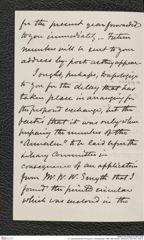 for the present year forwarded
to you immediately. — Future
numbers will be sent to your
address by post as they appear.
I ought, perhaps, to apologize
to you for the delay that has
taken place in arranging for
the proposed exchange; but the
fact is that it was only when
preparing the number of the
"Annalen" to be laid before the
Library Committee in
consequence of an application
from Mr. W. W. Smyth that I
found the printed circular
which was enclosed in the